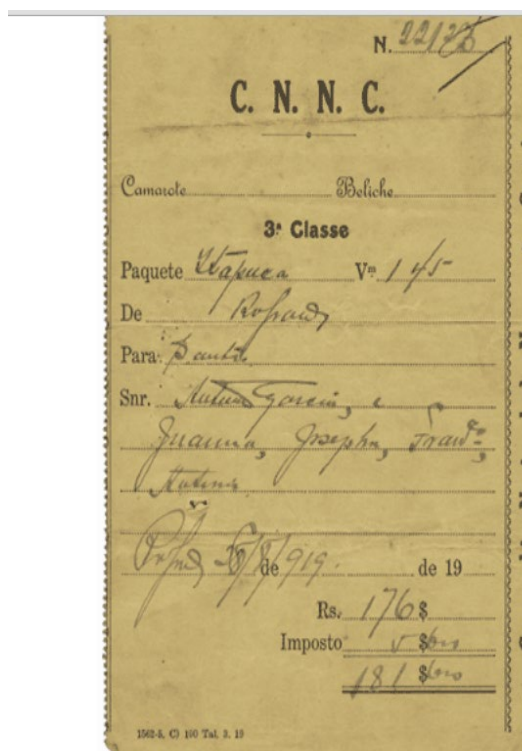 N. 22172
C. N. N. C.
Camarote Beliche
3ª Classe
Paquete Itapuca Vm 145
De
Para: Santos
Snr. Antonio Garcia, e
Juanna, Josepha, Francª,
Antonia
de 919. de 19
Rs. 176$
Imposto 5$
181$
1562-5, C) 100 Tal. 3. 19